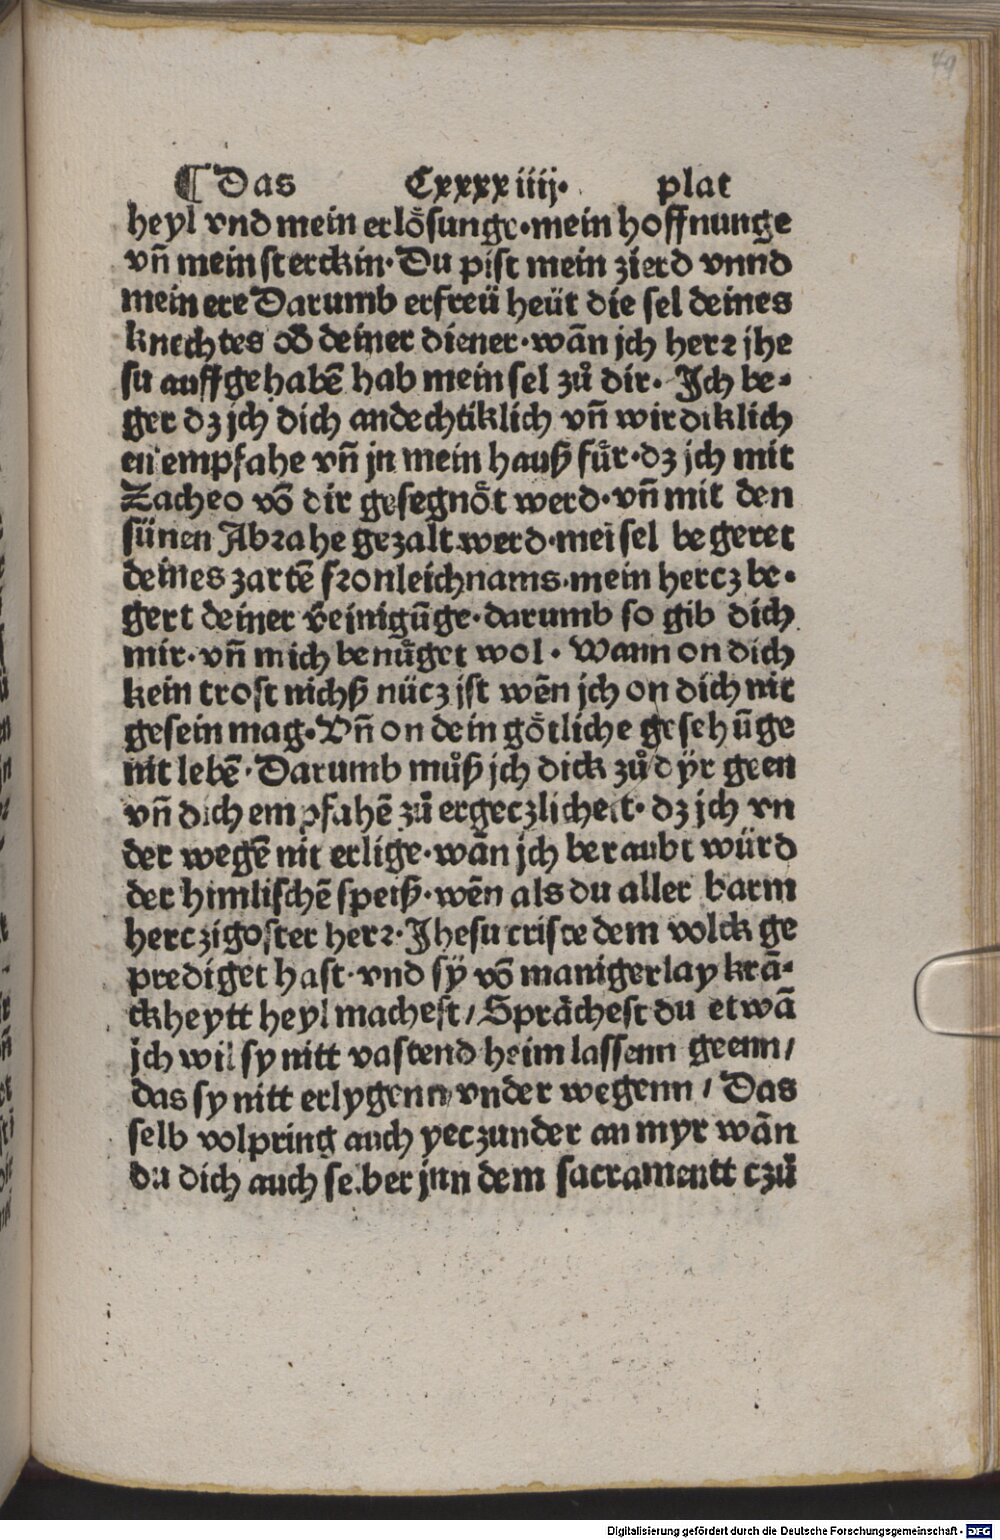 49
¶ Das Cxxxxiiij· plat
heyl vnd mein erlo͑sunge·mein hoffnunge
vn̄ mein sterckin· Du pist mein zierd vnnd
mein ere Darumb erfreü heüt die sel deines
knechtes od̄ deiner diener·wān jch herꝛ jhe
su auffgehabē hab mein sel zů dir· Ich be-
ger dz jch dich andechtiklich vn̄ wirdiklich
en empfahe vn̄ jn mein hauß fu͑r·dz jch mit
Zacheo vō dir gesegno͑t werd·vn̄ mit den
sünen Abꝛahe gezalt werd·mei sel begeret
deines zartē fꝛonleichnams·mein hercz be-
gert deiner v̄einigūge·darumb so gib dich
mir·vn̄ mich benu͑get wol· Wann on dich
kein trost nichß nücz jst wēn jch on dich nit
gesein mag·Vn̄ on dein go͑tliche gesehūge
nit lebē· Darumb můß jch dick zů dÿr geen
vn̄ dich empfahē zů ergeczlicheit· dz jch vn
der wegē nit erlige·wān jch beraubt würd
der himlischē speiß·wēn als du aller barm
hercziگoster herꝛ·Jhesu criste dem volck ge
prediget hast·vnd sÿ vō manigerlay krā-
ckheytt heyl machest/Sprāchest du etwā
jch wil sy nitt vastend heim lassenn geenn/
das sy nitt erlygenn vnder wegenn/ Das
selb volpring auch yeczunder an myr wān
du dich auch selber jnn dem sacramentt czů
Digitalisierung gefördert durch die Deutsche Forschungsgemeinschaft - DFG